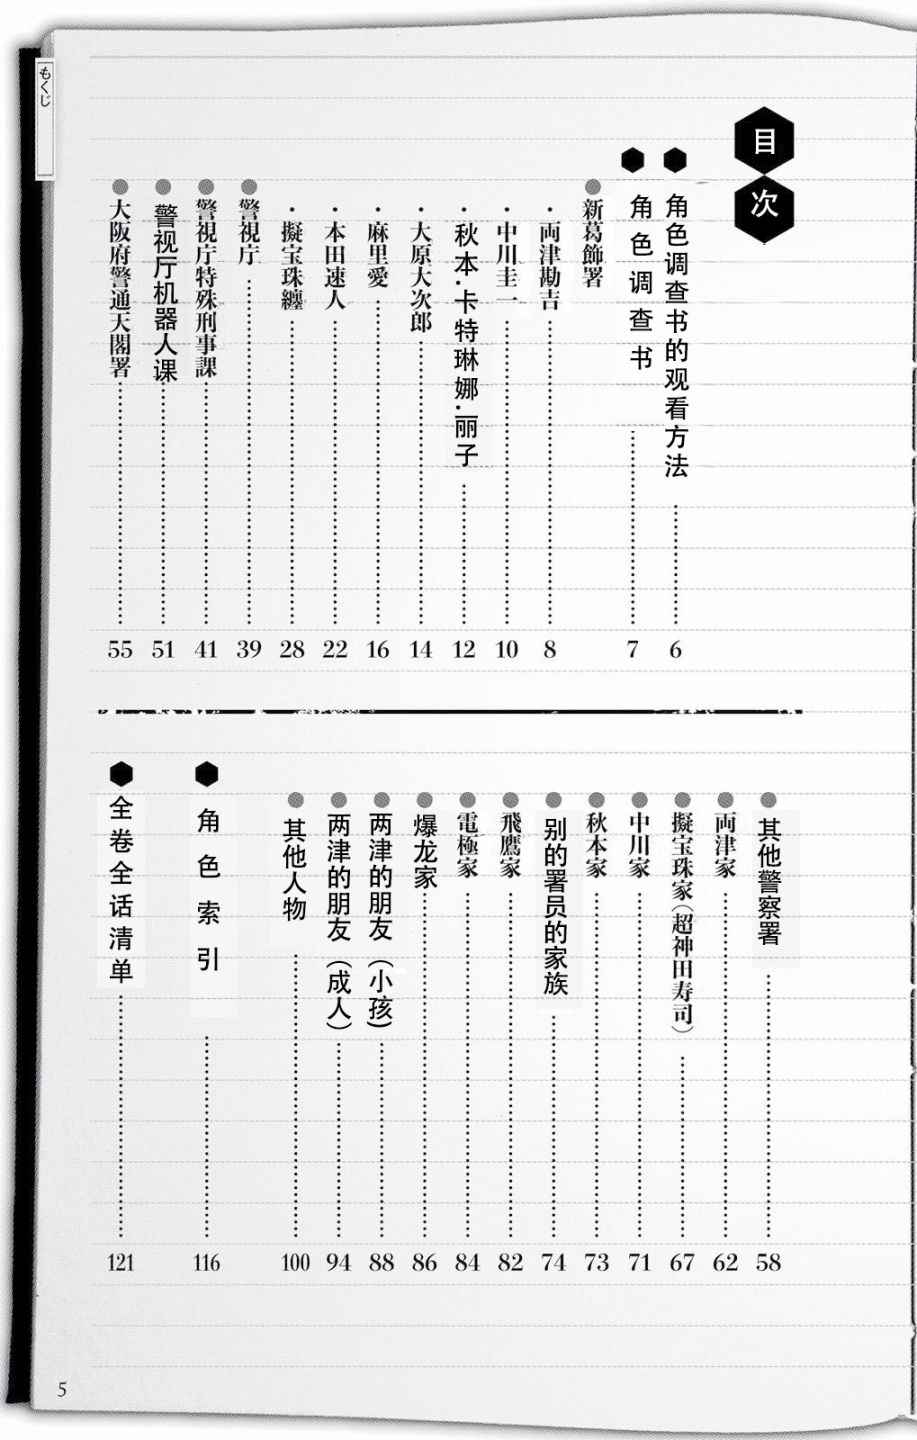 目次
角色调查书的观看方法 6
角色调查书 7
新葛飾署
・両津勘吉 8
・中川圭一 10
・秋本·卡特琳娜·丽子 12
・大原大次郎 14
・麻里愛 16
・本田速人 22
・擬宝珠纏 28
警視庁 39
警視庁特殊刑事課 41
警视厅机器人课 51
大阪府警通天閣署 55
其他警察署 58
両津家 62
擬宝珠家(超神田寿司) 67
中川家 71
秋本家 73
别的署员的家族 74
飛鷹家 82
電極家 84
爆龙家 86
两津的朋友(小孩) 88
两津的朋友(成人) 94
其他人物 100
角色索引 116
全卷全话清单 121
もくじ
5